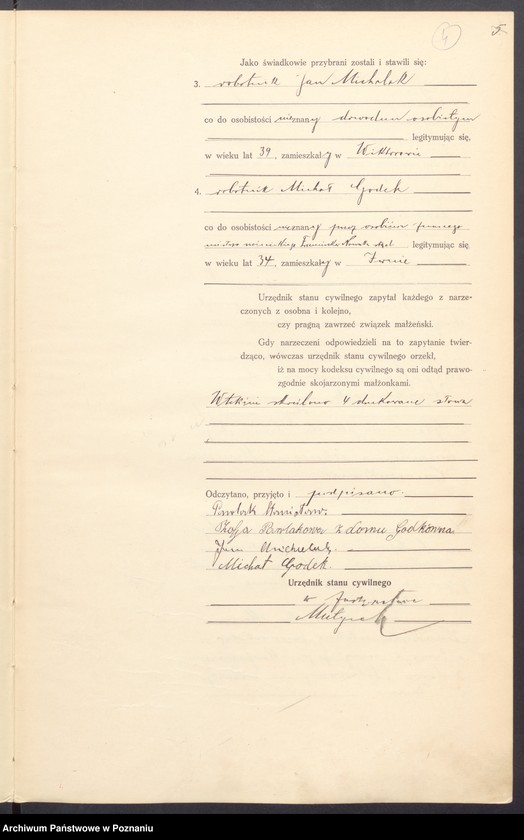 4
5
Jako świadkowie przybrani zostali i stawili się:
3. robotnik Jan Michalak
co do osobistości nieznany dowodem osobistym
legitymując się,
w wieku lat 39, zamieszkały w Wiktorowie
4. robotnik Michał Godek
co do osobistości nieznany przez osobiście
legitymując się
w wieku lat 34, zamieszkały w Iwnie
Urzędnik stanu cywilnego zapytał każdego z narze-
czonych z osobna i kolejno,
czy pragną zawrzeć związek małżeński.
Gdy narzeczeni odpowiedzieli na to zapytanie twier-
dząco, wówczas urzędnik stanu cywilnego orzekł,
iż na mocy kodeksu cywilnego są oni odtąd prawo-
zgodnie skojarzonymi małżonkami.
skreślono 4 drukowane słowa
Odczytano, przyjęto i podpisano
Pawlak Stanisław.
Zofja Pawlakowa z domu Godkówna.
Jan Michalak.
Michał Godek.
Urzędnik stanu cywilnego
w zastępstwie
Archiwum Państwowe w Poznaniu